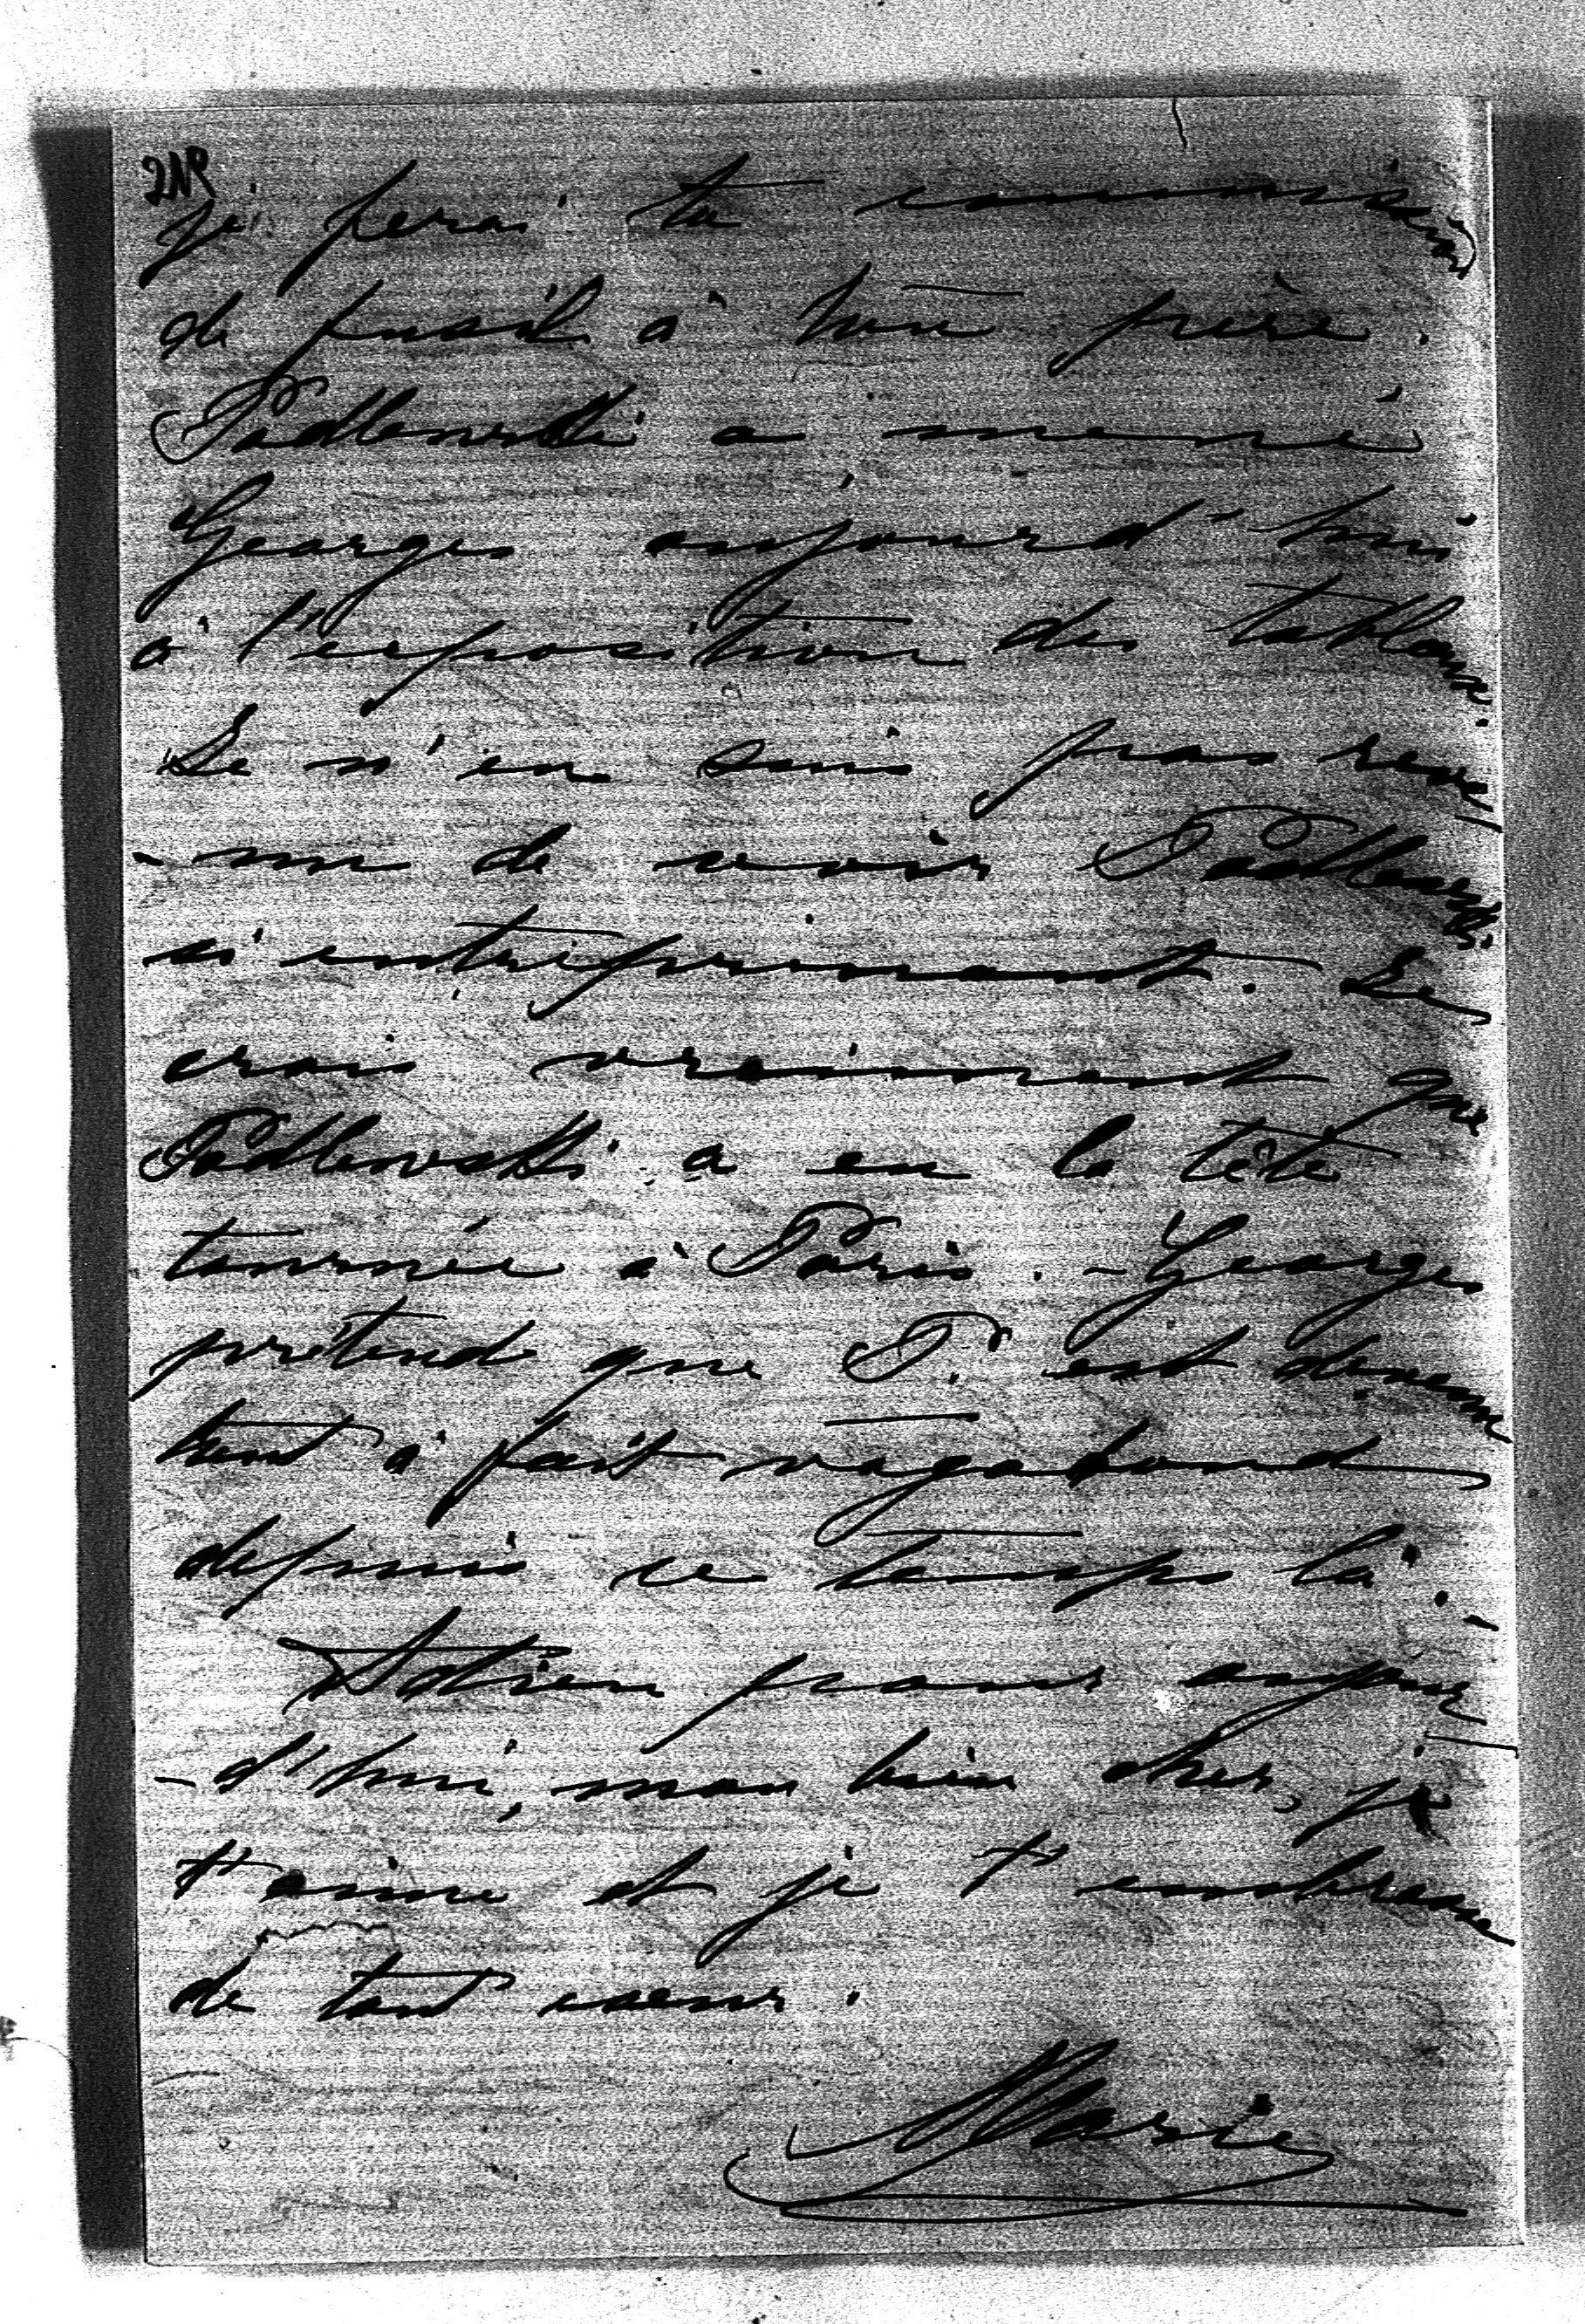 je ferai ta commission
de fusil à ton père.
Podlewski a mené
Georges aujourd'hui
à l'exposition des tableaux.
Je n'en suis pas reve-
-nu de voir Podlewski
si entreprenant. Je
crois vraiment que
Podlewski a eu la tête
tournée à Paris. - Georges
prétend que P. est devenu
tout à fait vagabond
depuis ce temps là. -
Adieu pour aujour-
-d'hui, mon bien cher, je
t'aime et je t'embrasse
de tout coeur.
Marie